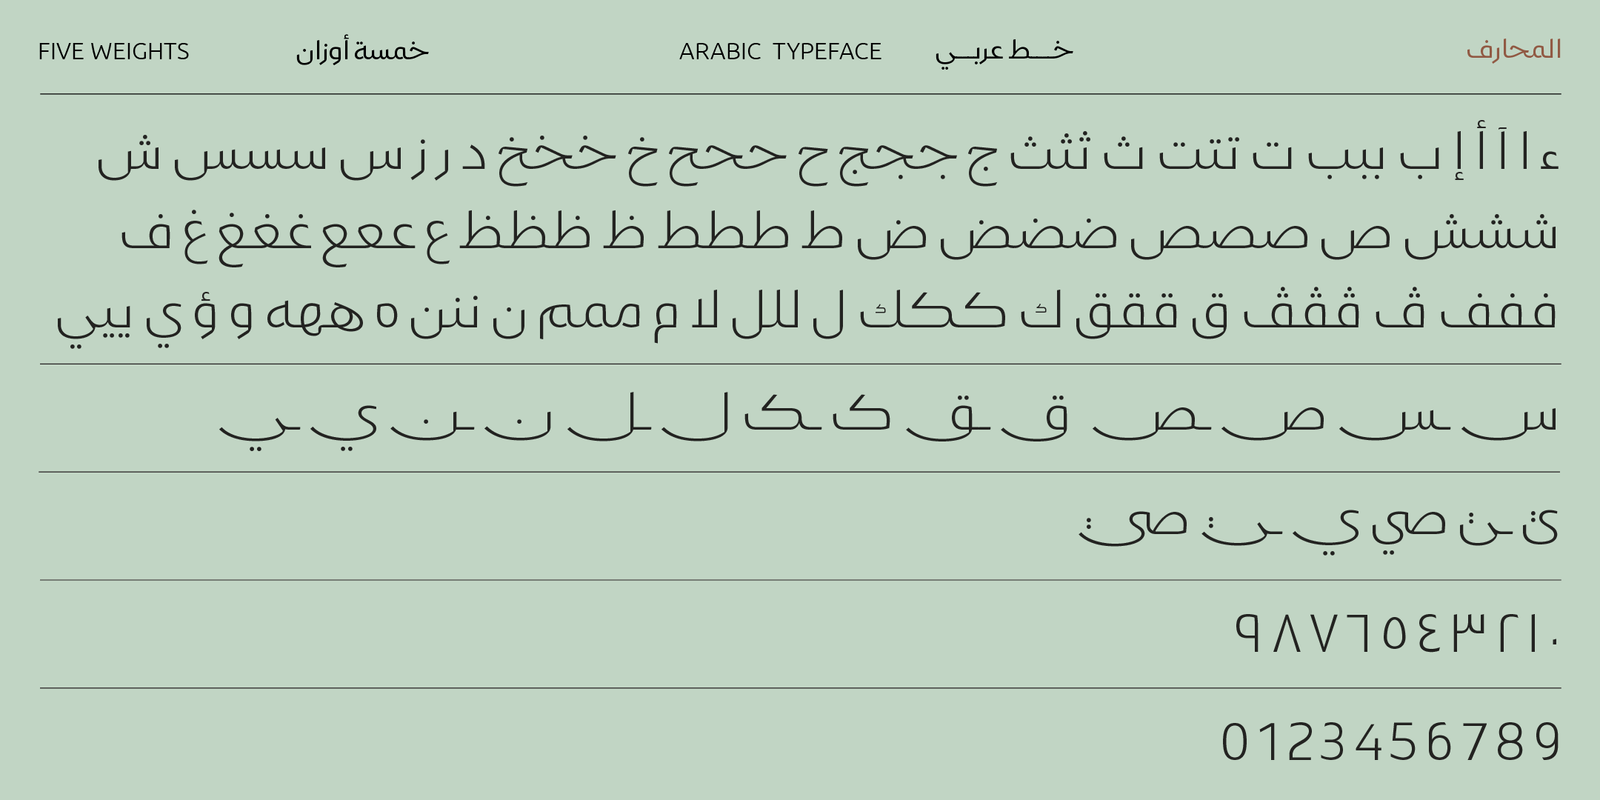 FIVE WEIGHTS خمسة أوزان ARABIC TYPEFACE خـــط عربـــي المحارف
ء ا آ أ إ ب ببب ت تتت ث ثثث ج ججج ح ححح خ خخخ د ر ز س سسس ش
ششش ص صصص ض ضضض ط ططط ظ ظظظ ع ععع غ غغغ ف
ففف ڤ ڤڤڤ ق ققق ك ككك ل للل لا م ممم ن ننن ه ههه و ؤ ي ييي
س ـس ص ـص ق ـق ک ـک ل ـل ن ـن ي ـي
٠١٢٣٤٥٦٧٨٩
0123456789